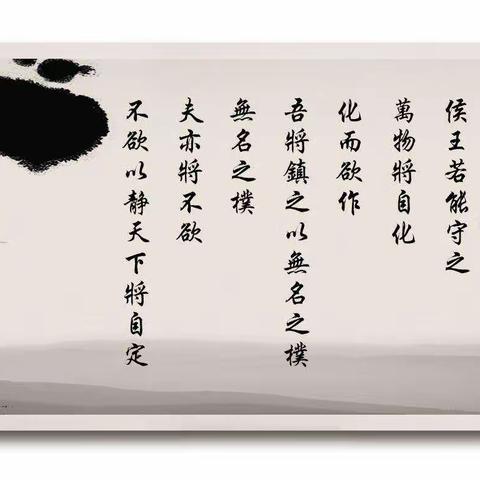 侯王若能守之
萬物將自化
化而欲作
吾將鎮之以無名之樸
無名之樸
夫亦將不欲
不欲以静天下將自定